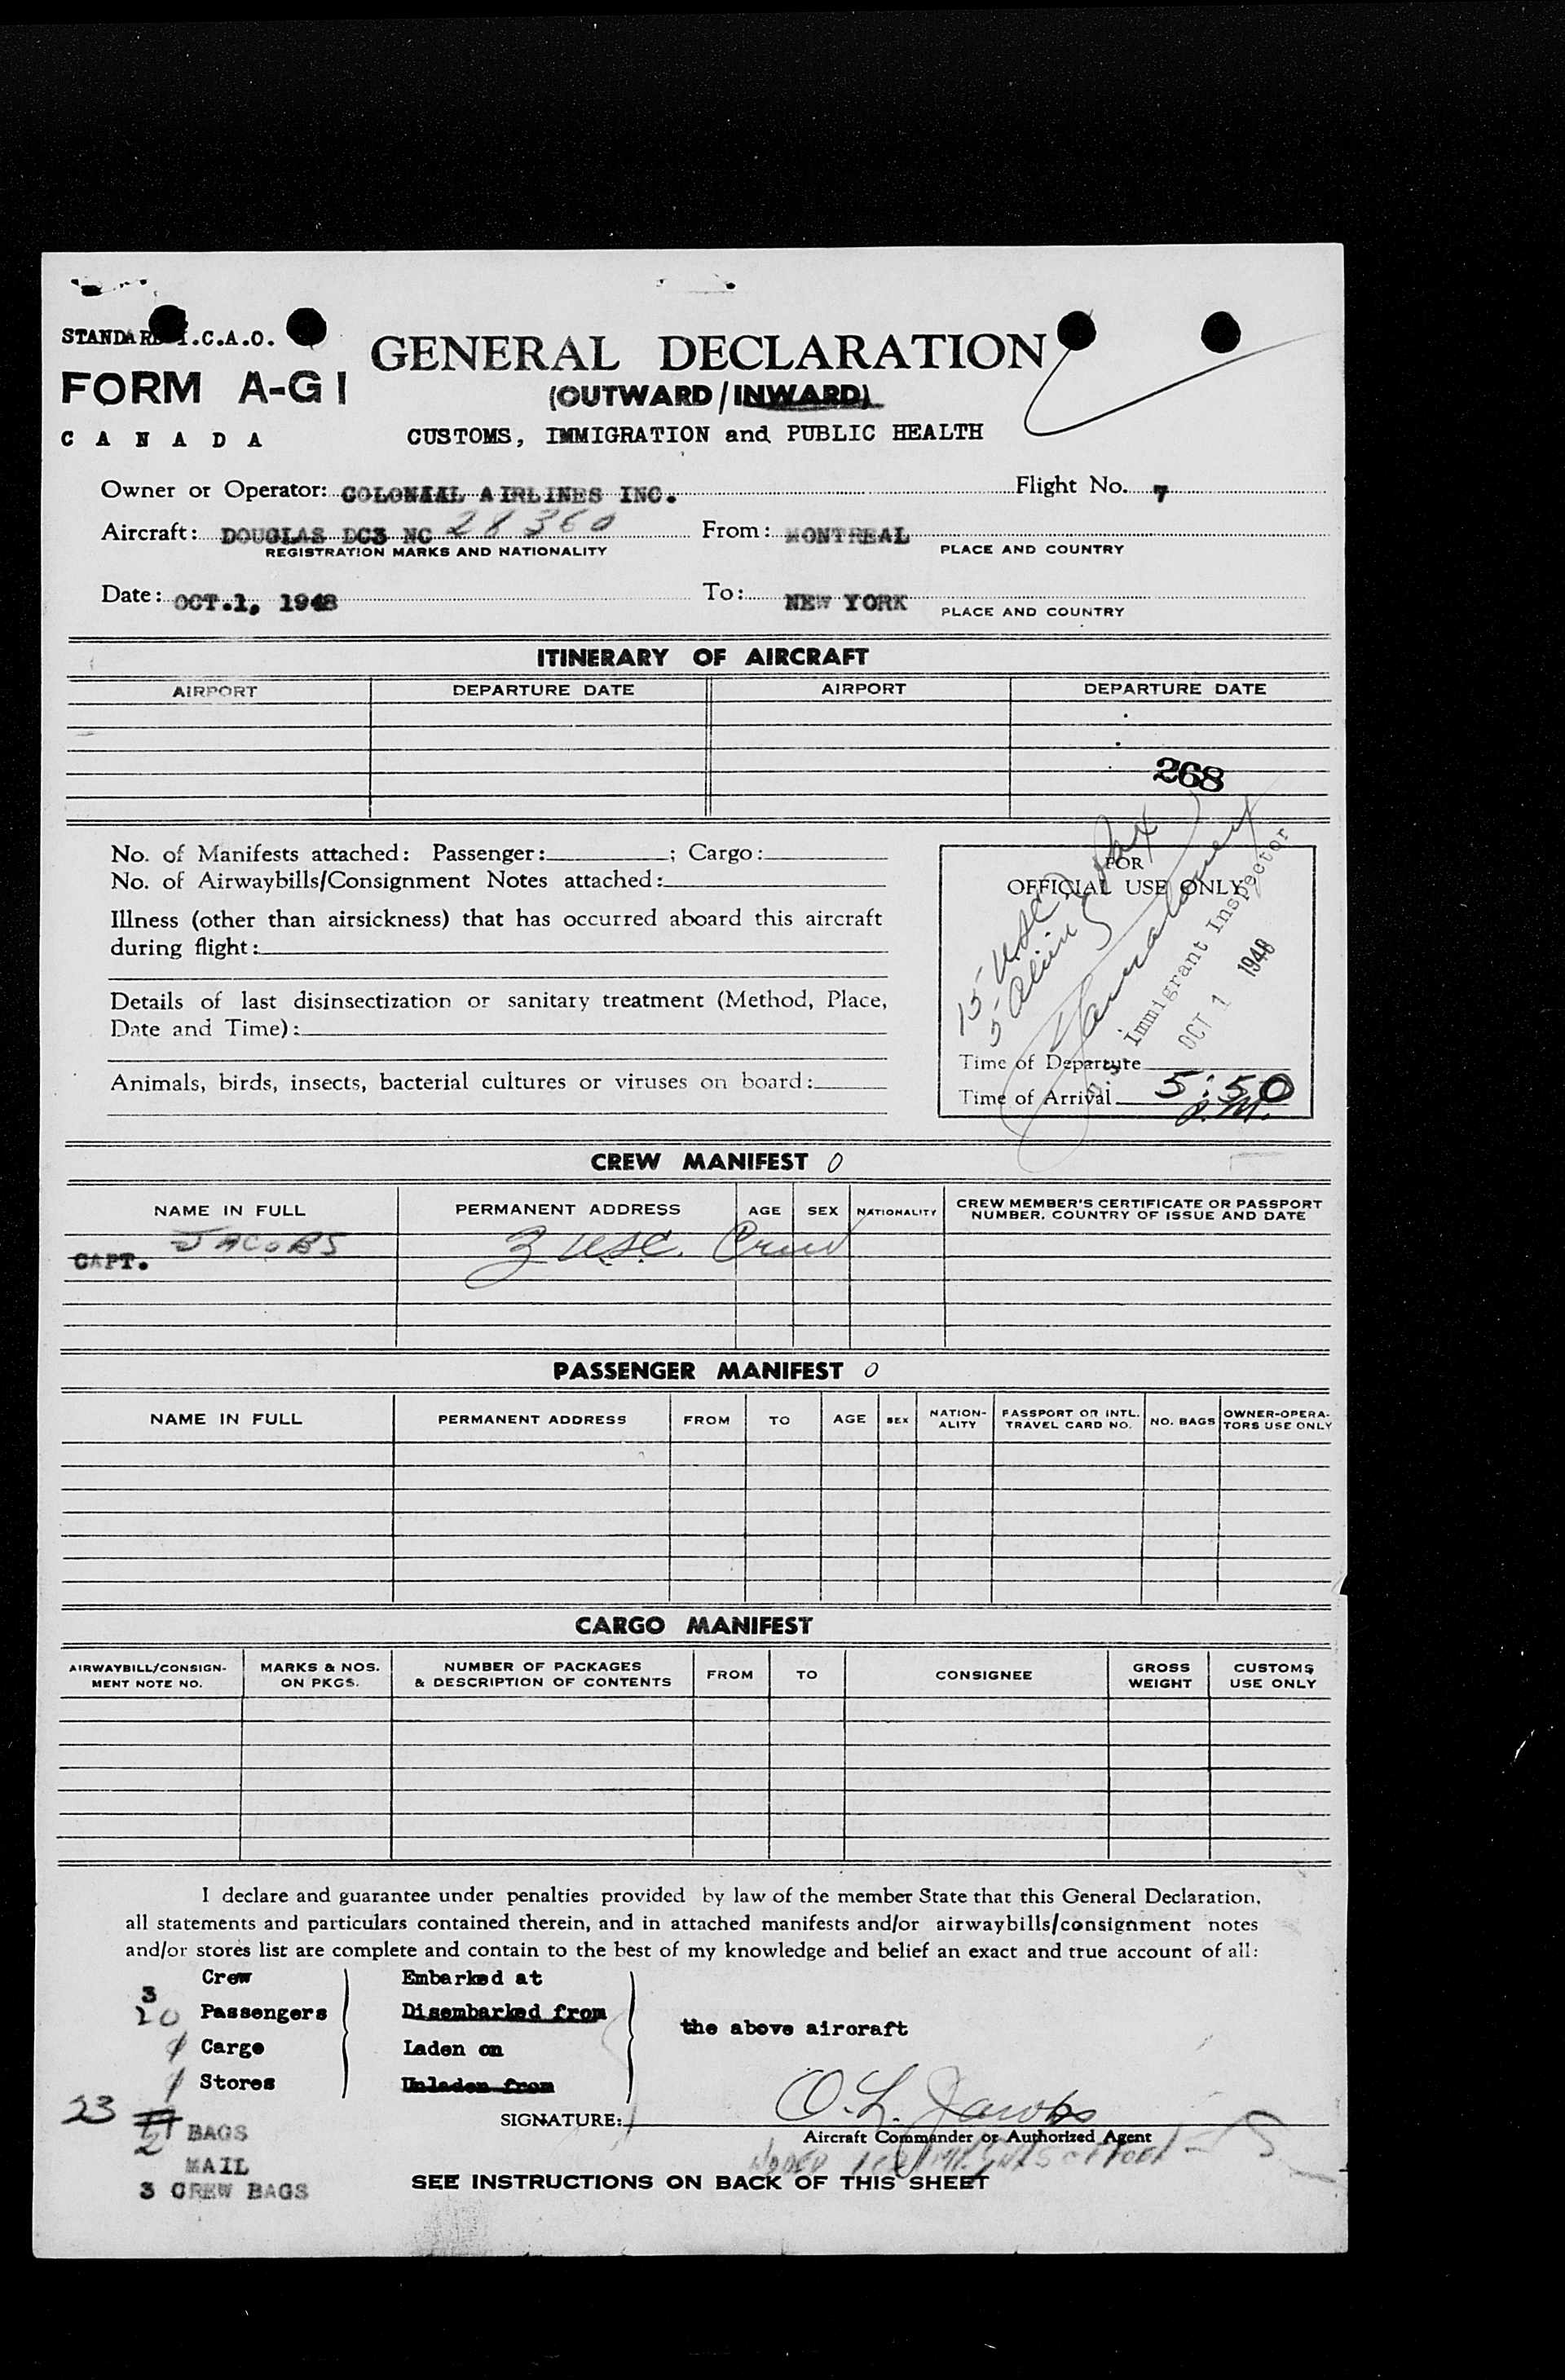 STANDARD I.C.A.O.
FORM A-G1
CANADA
GENERAL DECLARATION
(OUTWARD/INWARD)
CUSTOMS, IMMIGRATION and PUBLIC HEALTH
Owner or Operator: COLONIAL AIRLINES INC. Flight No. 7
Aircraft: DOUGLAS DC3 NC 28360 From: MONTREAL
REGISTRATION MARKS AND NATIONALITY PLACE AND COUNTRY
Date: OCT.1, 1948 To: NEW YORK
PLACE AND COUNTRY
ITINERARY OF AIRCRAFT
AIRPORT DEPARTURE DATE AIRPORT DEPARTURE DATE
268
No. of Manifests attached: Passenger: ; Cargo:
No. of Airwaybills/Consignment Notes attached:
Illness (other than airsickness) that has occurred aboard this aircraft
during flight:
Details of last disinsectization or sanitary treatment (Method, Place,
Date and Time):
Animals, birds, insects, bacterial cultures or viruses on board:
FOR
OFFICIAL USE ONLY
15 USC
5 Alien
Immigrant Inspector
OCT 1 1948
Time of Departure
Time of Arrival 5:50
P.M.
CREW MANIFEST 0
NAME IN FULL PERMANENT ADDRESS AGE SEX NATIONALITY CREW MEMBER'S CERTIFICATE OR PASSPORT
NUMBER, COUNTRY OF ISSUE AND DATE
CAPT. JACOBS 3 USC. Crew
PASSENGER MANIFEST 0
NAME IN FULL PERMANENT ADDRESS FROM TO AGE SEX NATION-
ALITY PASSPORT OR INTL.
TRAVEL CARD NO. NO. BAGS OWNER-OPERA-
TORS USE ONLY
CARGO MANIFEST
AIRWAYBILL/CONSIGN-
MENT NOTE NO. MARKS & NOS.
ON PKGS. NUMBER OF PACKAGES
& DESCRIPTION OF CONTENTS FROM TO CONSIGNEE GROSS
WEIGHT CUSTOMS
USE ONLY
I declare and guarantee under penalties provided by law of the member State that this General Declaration,
all statements and particulars contained therein, and in attached manifests and/or airwaybills/consignment notes
and/or stores list are complete and contain to the best of my knowledge and belief an exact and true account of all:
3 Crew Embarked at
20 Passengers Disembarked from
the above aircraft
1 Cargo Laden on
1 Stores Unladen from
23 BAGS
SIGNATURE: O. L. Jacobs
Aircraft Commander or Authorized Agent
2 MAIL
3 CREW BAGS
SEE INSTRUCTIONS ON BACK OF THIS SHEET